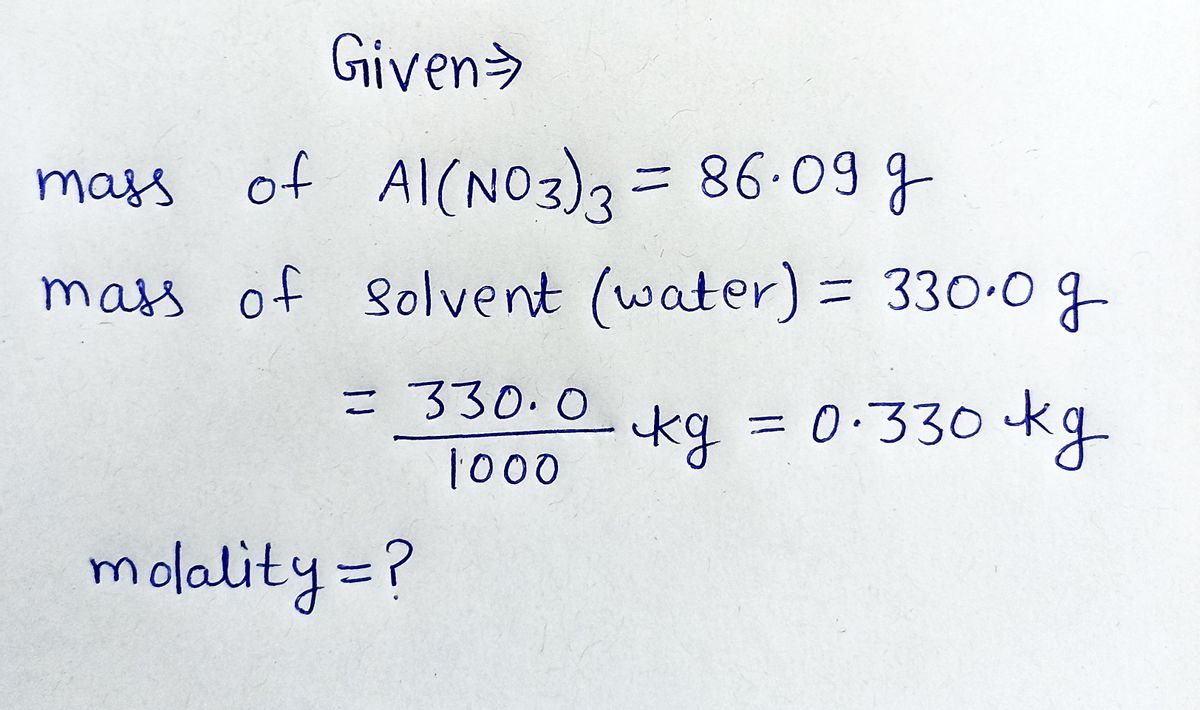 Given⇒
mass of Al(NO3)3 = 86.09 g
mass of solvent (water) = 330.0 g
= 330.0/1000 kg = 0.330 kg
molality = ?